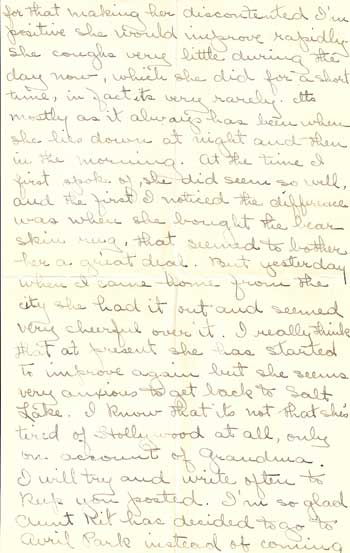 for that making her discontented I'm
positive she would improve rapidly.
She coughs very little during the
day now, which she did for a short
time, in fact its very rarely. Its
mostly as it always has been when
she lies down at night and then
in the morning. At the time I
first spoke of, she did seem so well,
and the first I noticed the difference
was when she bought the bear
skin rug, that seemed to bother
her a great deal. But yesterday
when I came home from the
city she had it out and seemed
very cheerful over it. I really think
that at present she has started
to improve again but she seems
very anxious to get back to Salt
Lake. I know that its not that she's
tired of Hollywood at all, only
on account of Grandma.
I will try and write often to
keep you posted. I'm so glad
Aunt Kit has decided to go to
Avril Park instead of coming